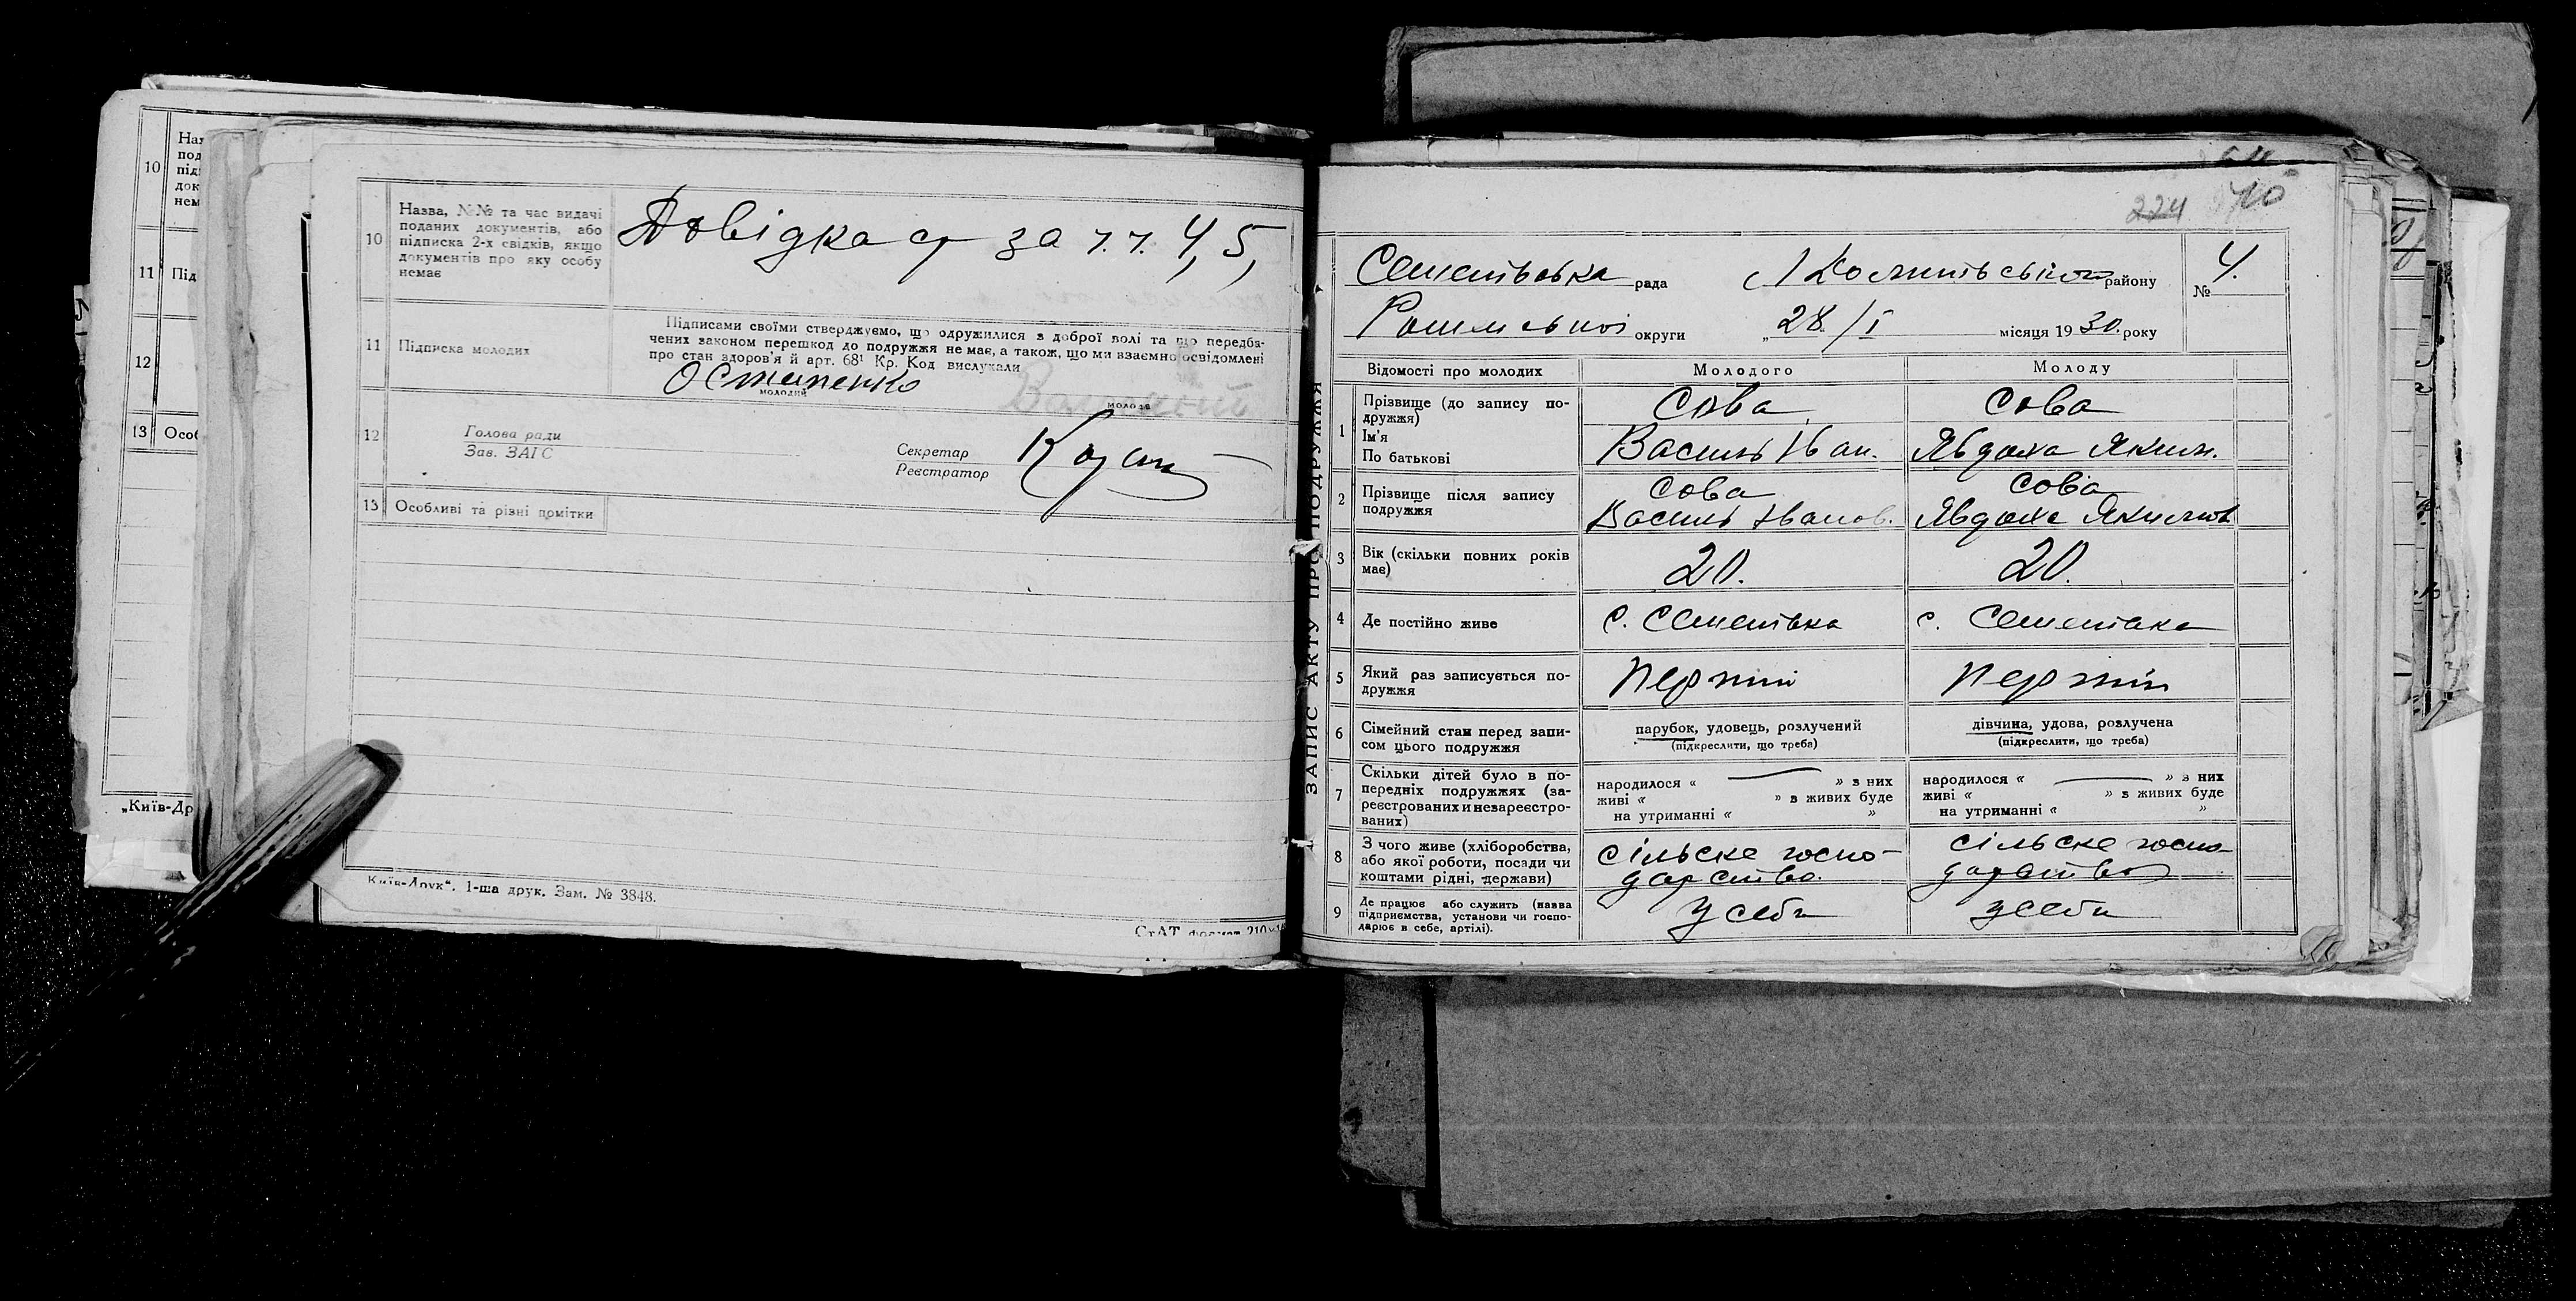 10
На
под
підп
док
нем
11 Під
12
13 Особ
„Київ-Др
10
Назва, №№ та час видачі
поданих документів, або
підписка 2-х свідків, якщо
документів про яку особу
немає
Довідка ср за 7.7. 4, 5,
11 Підписка молодих
Підписами своїми стверджуємо, що одружилися з доброї волі та що передба-
чених законом перешкод до подружжя не має, а також, що ми взаємно освідомлені
про стан здоров'я й арт. 68¹ Кр. Код вислухали
Остапенко
молодий
молода
12
Голова ради
Зав. ЗАГС
Секретар
Реєстратор
13 Особливі та різні помітки
Київ-Друк“. 1-ша друк. Зам. № 3848.
СтАТ формат 210×1
224
ЗАПИС АКТУ ПРО ПОДРУЖЖЯ
Семенівська рада району
№ 4.
округи „28/I місяця 1930. року
Відомості про молодих
Молодого
Молоду
1
Прізвище (до запису по-
дружжя)
Ім'я
По батькові
Сова
Василь Іван.
Сова
Явдоха Яким.
2
Прізвище після запису
подружжя
Сова
Василь Іванов.
Сова
Явдоха Якимов
3
Вік (скільки повних років
має)
20.
20.
4 Де постійно живе
с. Семенівка
с. Семенівка
5
Який раз записується по-
дружжя
перший
перший
6
Сімейний стан перед запи-
сом цього подружжя
парубок, удовець, розлучений
(підкреслити, що треба)
дівчина, удова, розлучена
(підкреслити, що треба)
7
Скільки дітей було в по-
передніх подружжях (за-
реєстрованих и незареєстро-
ваних)
народилося « » з них
живі « » з живих буде
на утриманні « »
народилося « » з них
живі « » з живих буде
на утриманні « »
8
З чого живе (хліборобства,
або якої роботи, посади чи
коштами рідні, держави)
сільське госпо-
дарство.
сільське госпо-
дарство
9
Де працює або служить (назва
підприємства, установи чи госпо-
дарює в себе, артілі).
У себе
у себе